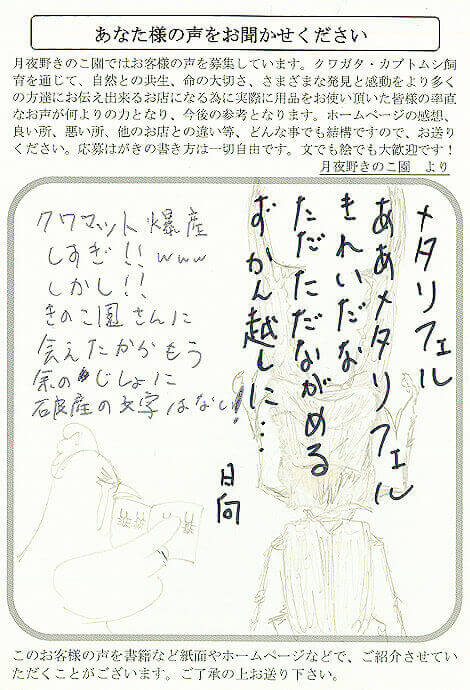 あなた様の声をお聞かせください
月夜野きのこ園ではお客様の声を募集しています。クワガタ・カブトムシ飼
育を通じて、自然との共生、命の大切さ、さまざまな発見と感動をより多く
の方達にお伝え出来るお店になる為に実際に用品をお使い頂いた皆様の率直
なお声が何よりの力となり、今後の参考となります。ホームページの感想、
良い所、悪い所、他のお店との違い等、どんな事でも結構ですので、お送り
ください。応募はがきの書き方は一切自由です。文でも絵でも大歓迎です！
月夜野きのこ園 より
メタリフェル
ああメタリフェル
きれいだな
ただただながめる
ずかん越しに…
日向
クワマット爆産
しすぎ!! www
しかし!!
きのこ園さんに
会えたからもう
余のじしょに
破産の文字はなし!
このお客様の声を書籍など紙面やホームページなどで、ご紹介させてい
ただくことがございます。ご了承の上お送り下さい。